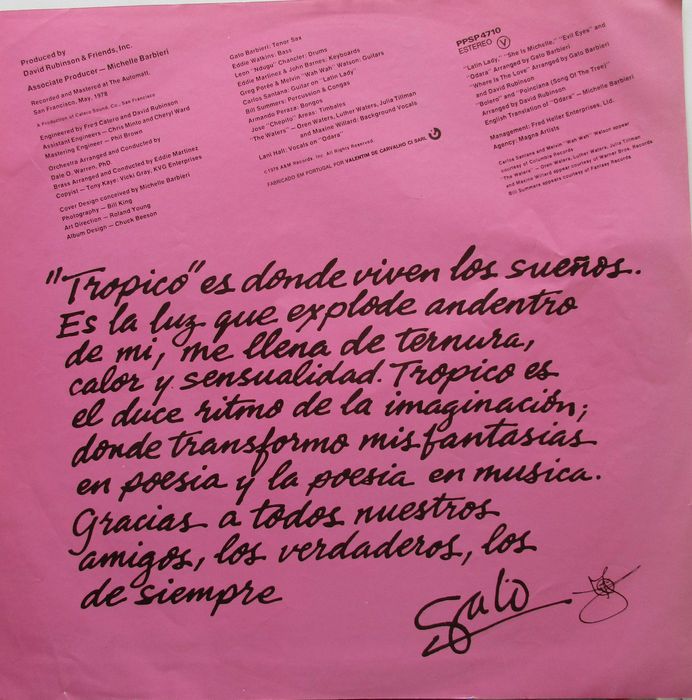 Produced by
David Rubinson & Friends, Inc.
Associate Producer — Michelle Barbieri
Recorded and Mastered at The Automatt.
San Francisco, May, 1978
A Production of Catero Sound, Co., San Francisco
Engineered by Fred Catero and David Rubinson
Assistant Engineers — Chris Minto and Cheryl Ward
Mastering Engineer — Phil Brown
Orchestra Arranged and Conducted by
Dale O. Warren, PhD.
Brass Arranged and Conducted by Eddie Martinez
Copyist — Tony Kaye; Vicki Gray, KVG Enterprises
Cover Design conceived by Michelle Barbieri
Photography — Bill King
Art Direction — Roland Young
Album Design — Chuck Beeson
Gato Barbieri: Tenor Sax
Eddie Watkins: Bass
Leon "Ndugu" Chancler: Drums
Eddie Martinez & John Barnes: Keyboards
Greg Poree & Melvin "Wah Wah" Watson: Guitars
Carlos Santana: Guitar on "Latin Lady"
Bill Summers: Percussion & Congas
Armando Peraza: Bongos
Jose "Chepito" Areas: Timbales
"The Waters" — Oren Waters, Luther Waters, Julia Tillman
and Maxine Willard: Background Vocals
Lani Hall: Vocals on "Odara"
℗ 1978 A&M Records, Inc. All Rights Reserved.
FABRICADO EM PORTUGAL POR VALENTIM DE CARVALHO CI SARL
PPSP 4710
ESTEREO V
"Latin Lady," "She Is Michelle," "Evil Eyes" and
"Odara" Arranged by Gato Barbieri
"Where Is The Love" Arranged by Gato Barbieri
and David Rubinson
"Bolero" and "Poinciana (Song Of The Tree)"
Arranged by David Rubinson
English Translation of "Odara" — Michelle Barbieri
Management: Fred Heller Enterprises. Ltd.
Agency: Magna Artists
Carlos Santana and Melvin "Wah Wah" Watson appear
courtesy of Columbia Records
"The Waters" — Oren Waters, Luther Waters, Julia Tillman
and Maxine Willard appear courtesy of Warner Bros. Records
Bill Summers appears courtesy of Fantasy Records
"Tropico" es donde viven los sueños.
Es la luz que explode andentro
de mi, me llena de ternura,
calor y sensualidad. Tropico es
el duce ritmo de la imaginación;
donde transformo mis fantasias
en poesia y la poesia en musica.
Gracias a todos nuestros
amigos, los verdaderos, los
de siempre
Gato